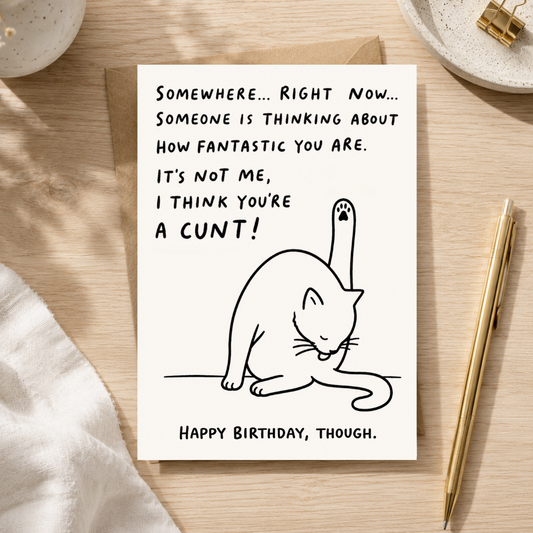 SOMEWHERE... RIGHT NOW...
SOMEONE IS THINKING ABOUT
HOW FANTASTIC YOU ARE.
IT'S NOT ME,
I THINK YOU'RE
A CUNT!
HAPPY BIRTHDAY, THOUGH.